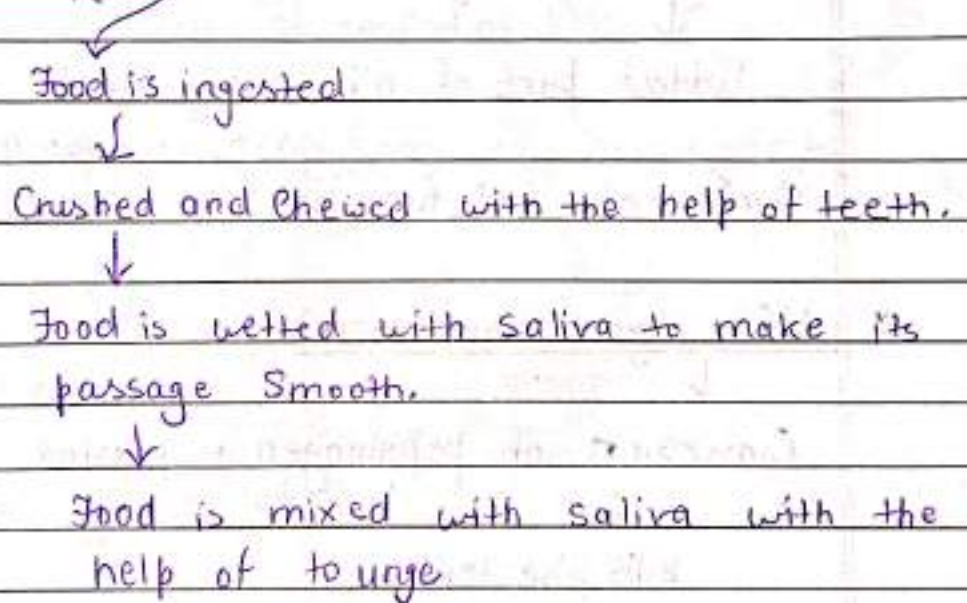 Food is ingested
↓
Crushed and Chewed with the help of teeth.
↓
Food is wetted with saliva to make its
passage Smooth.
↓
Food is mixed with saliva with the
help of tounge.